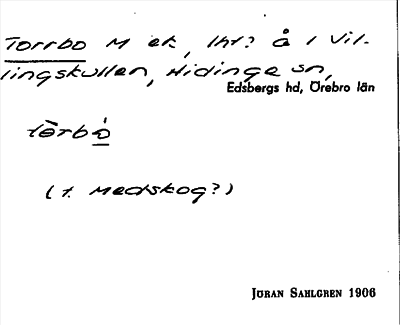 Torrbo M ek, lht? å i Vil-
lingskullen, Hidinge sn,
Edsbergs hd, Örebro län
tørbò
(t. Medskog?)
JÖRAN SAHLGREN 1906